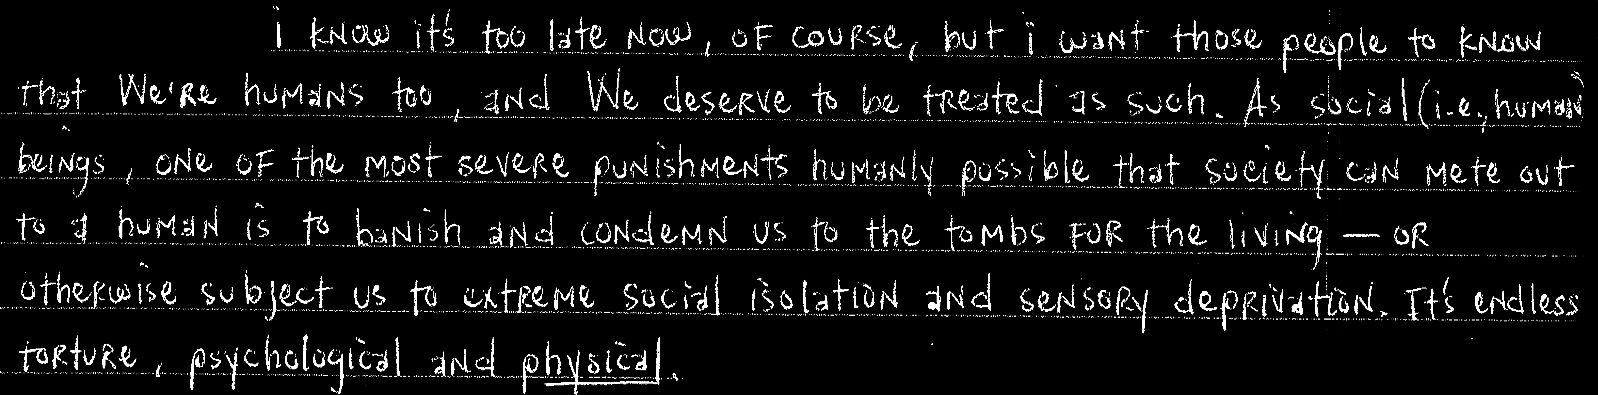 i know it's too late now, of course, but i want those people to know
that We're humans too, and We deserve to be treated as such. As social (i.e., human)
beings, one of the most severe punishments humanly possible that society can mete out
to a human is to banish and condemn us to the tombs for the living — or
otherwise subject us to extreme social isolation and sensory deprivation. It's endless
torture, psychological and physical.